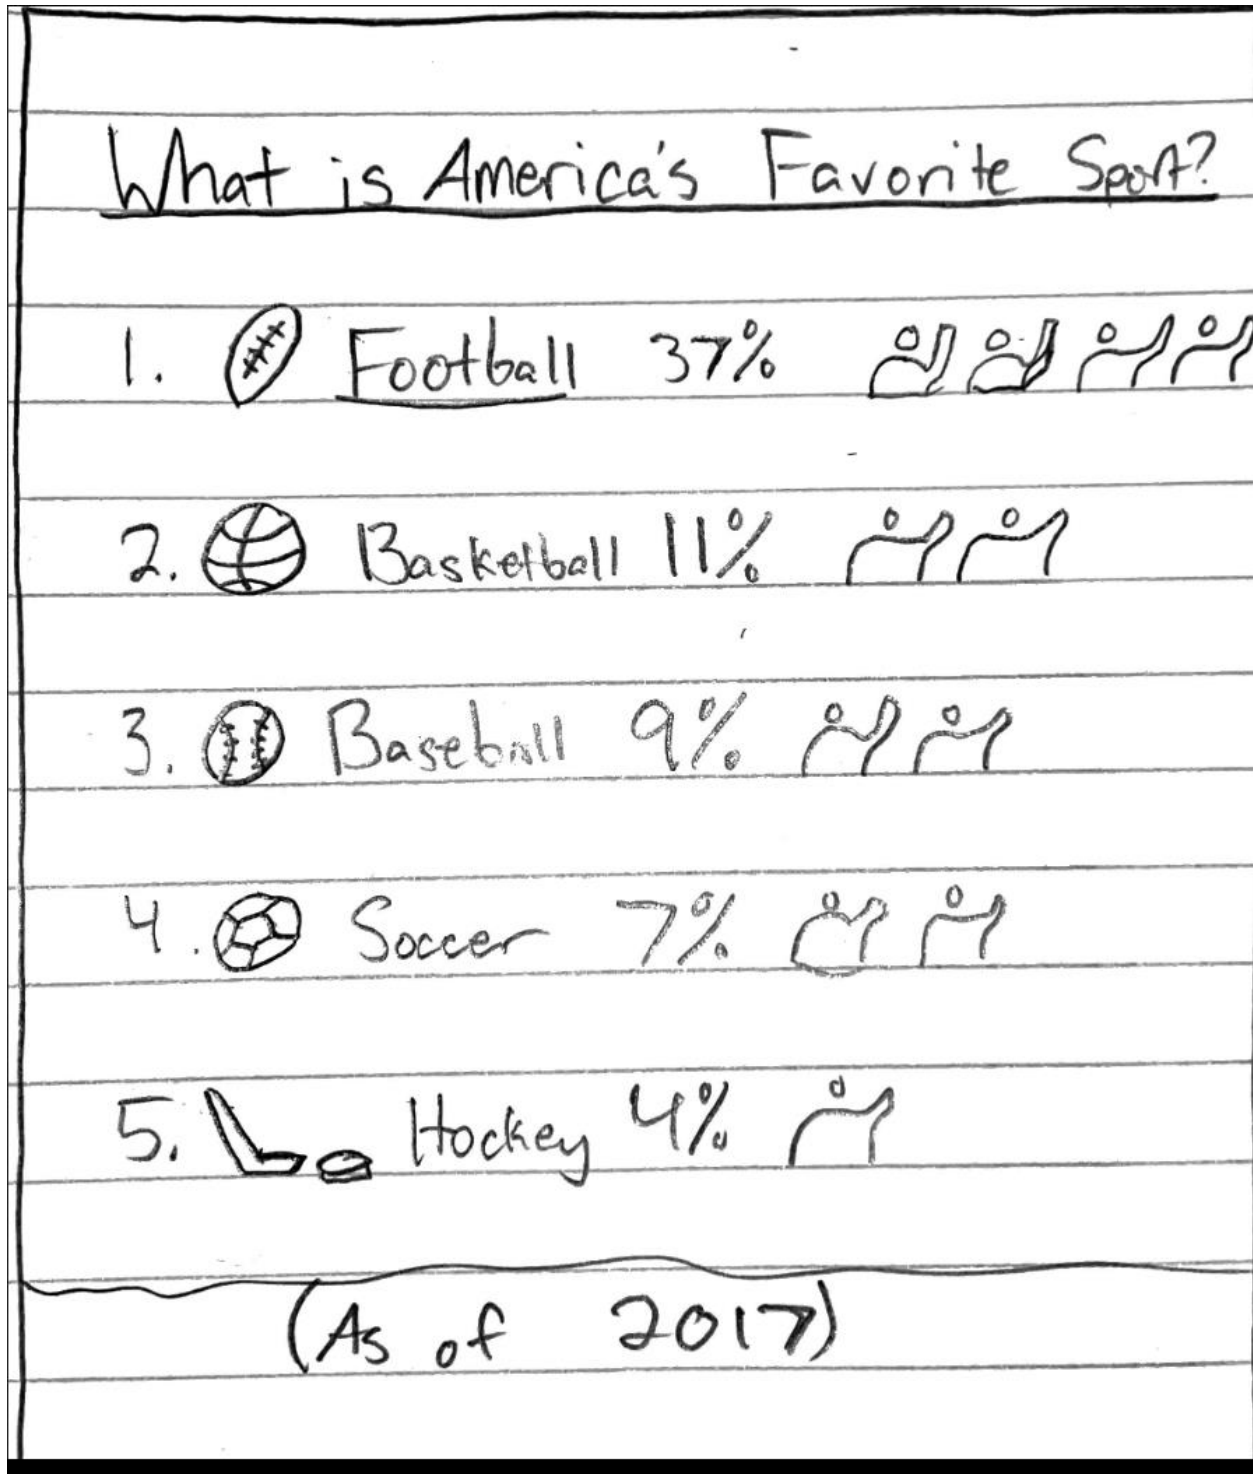 What is America's Favorite Sport?
1. Football 37%
2. Basketball 11%
3. Baseball 9%
4. Soccer 7%
5. Hockey 4%
(As of 2017)